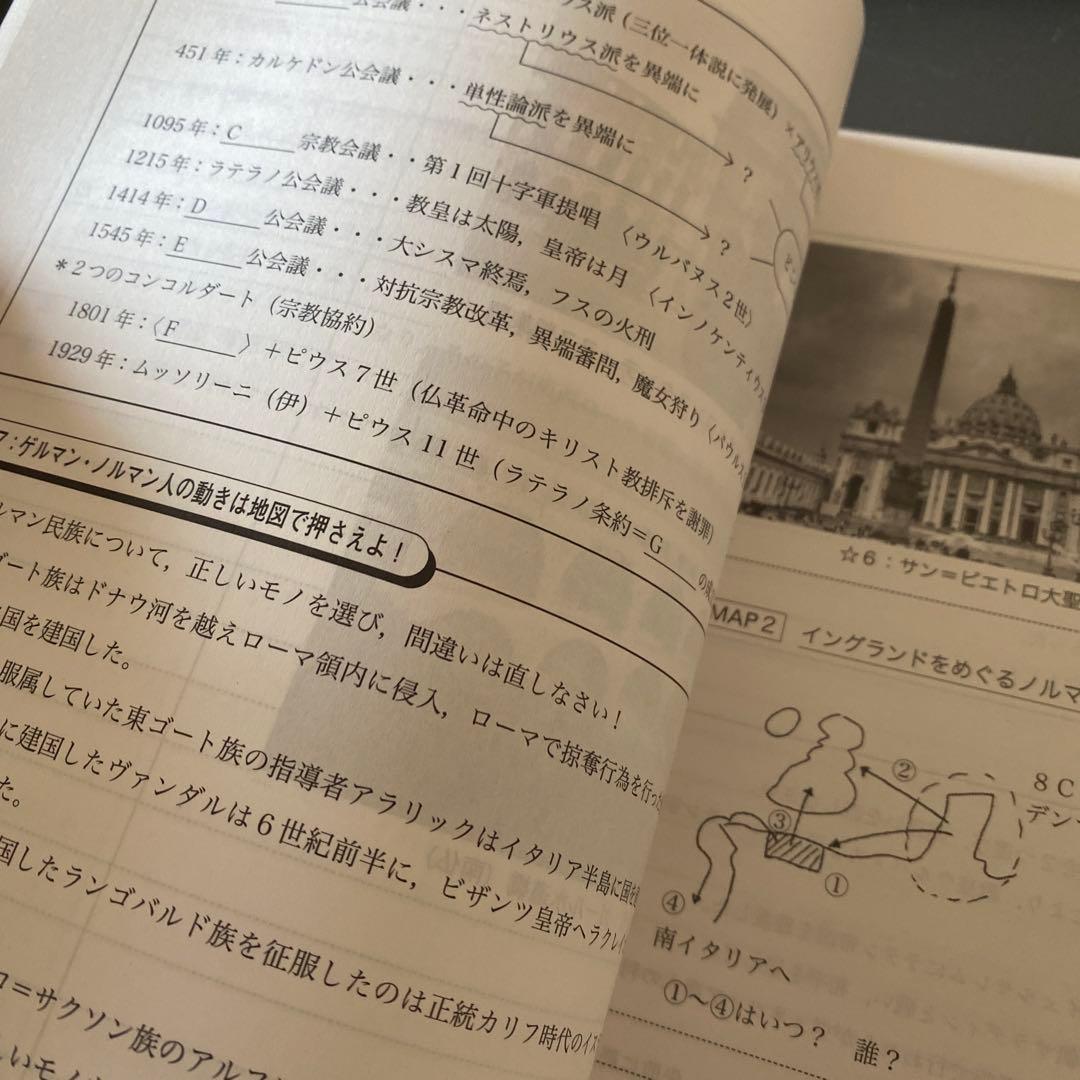 公会議・・・ネストリウス派を異端に
ス派（三位一体説に発展）
451年：カルケドン公会議・・・単性論派を異端に
？
？
1095年：C 宗教会議・・第1回十字軍提唱〈ウルバヌス2世〉
1215年：ラテラノ公会議・・・教皇は太陽，皇帝は月〈インノケンティウス
1414年：D 公会議・・・大シスマ終焉，フスの火刑
1545年：E 公会議・・・対抗宗教改革，異端審問，魔女狩り〈パウルス
＊2つのコンコルダート（宗教協約）
1801年：〈F 〉＋ピウス7世（仏革命中のキリスト教排斥を謝罪）
1929年：ムッソリーニ（伊）＋ピウス11世（ラテラノ条約＝G の
：ゲルマン・ノルマン人の動きは地図で押さえよ！
ルマン民族について，正しいモノを選び，間違いは直しなさい！
ゴート族はドナウ河を越えローマ領内に侵入，ローマで掠奪行為を行っ
国を建国した。
服属していた東ゴート族の指導者アラリックはイタリア半島に国を
に建国したヴァンダルは6世紀前半に，ビザンツ皇帝ヘラクレイ
た。
国したランゴバルド族を征服したのは正統カリフ時代のイス
ロ＝サクソン族のアルフ
しいモノ
☆6：サン＝ピエトロ大聖
MAP2 イングランドをめぐるノルマ
②
8C
デン
③
①
④
南イタリアへ
①〜④はいつ？ 誰？